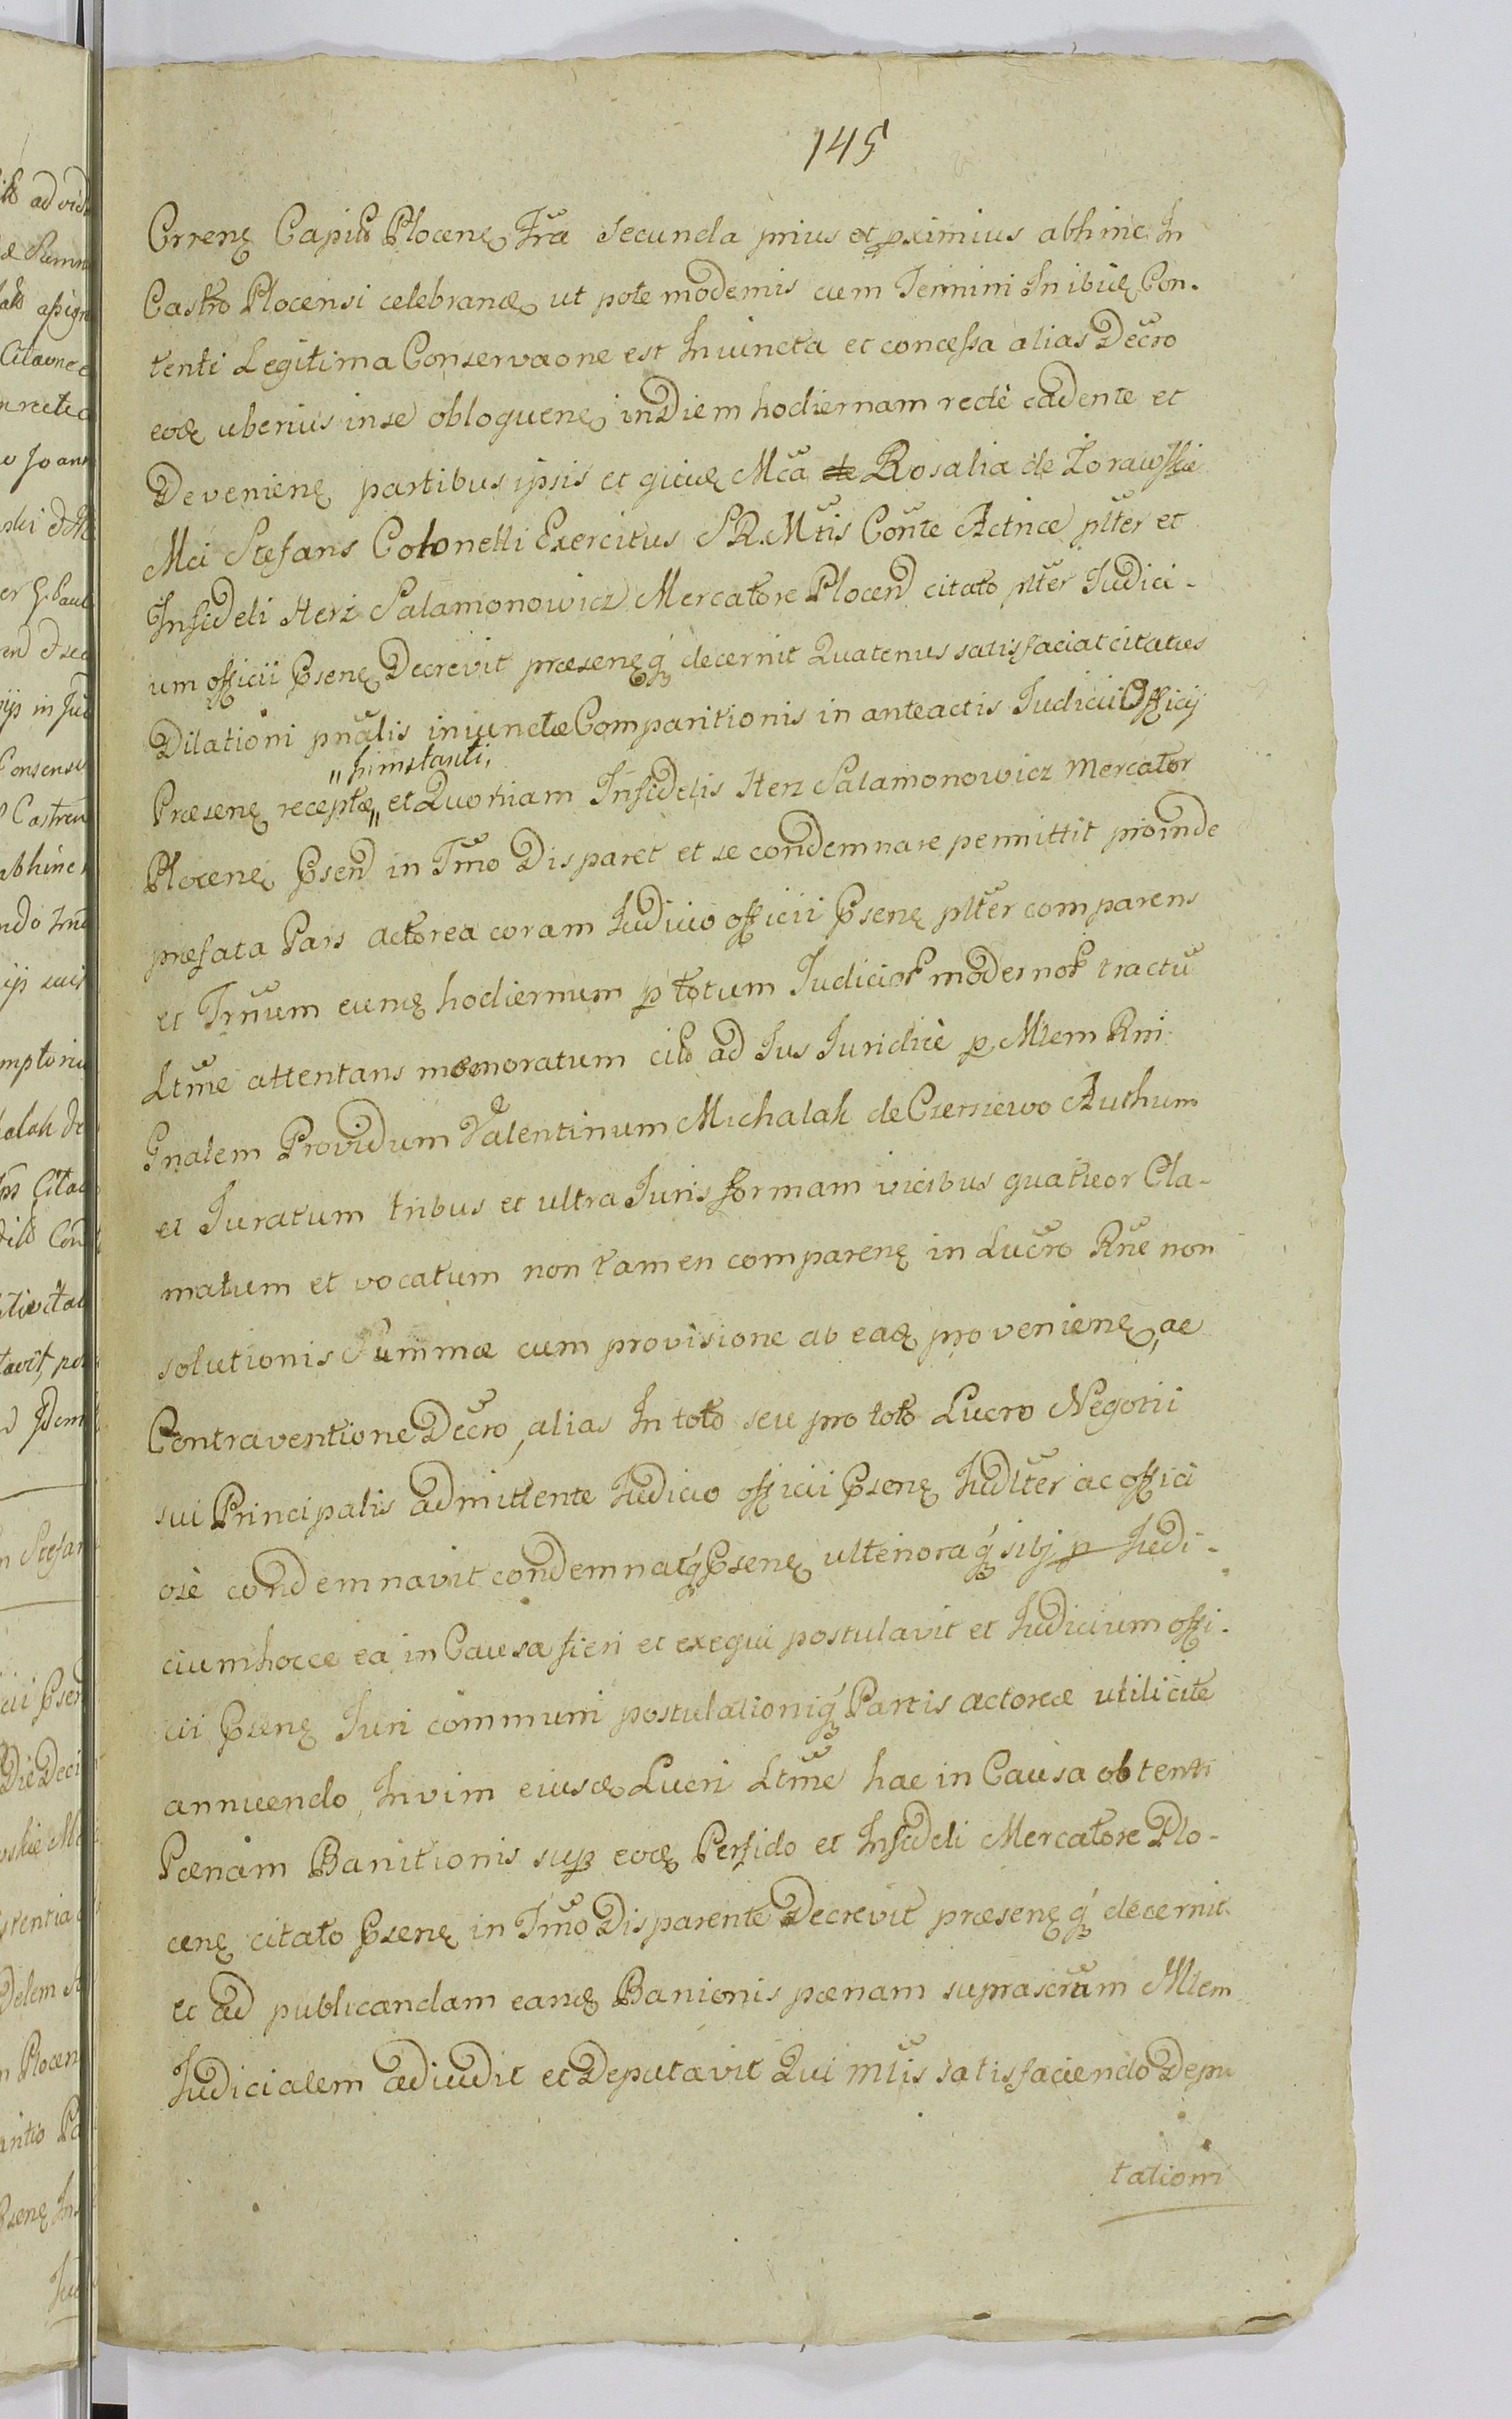 145
Crrenę Capitł Plocenę Fra Secunda prius et pximius abhinc In
Castro Plocensi celebranæ, ut pote modernis cum Termini In ibidę Con-
tenti Legitima Conservaone est Iniuncta et concessa alias Decro
eodę uberius in se obloquenę, in Diem hodiernam rectè cadente et
Devenienę partibus ipsis et quidę Mca Rosalia de Żorawskie
Mci Stefans Colonelli Exercitus S R. Mtis Conte Actrice plter et
Infideli Herz Salamonowicz Mercatore Plocen citato plter Iudici-
um officii Psenę Decrevit præsenęq decernit Quatenus satisfaciat citatus
Dilationi pnalis iniunctæ Comparitionis in anteactis Iudicii Officij
"himstanti"
Præsenę receptæ " et Quoniam Infidelis Herz Salamonowicz Mercator
Plocenę Psen in Tmo Disparet et se condemnare permittit proinde
præfata Pars actorea coram Iudicio officii Psenę plter comparens
et Trnum eundę hodiernum p totum Iudicior modernor tractu
Ltme attentans memoratum citł ad Ius Iuridicè p Mlem Rni
Gnalem Providum Valentinum Michalak de Czerniewo Authum
et Iuratum tribus et ultra Iuris formam vicibus quatuor Cla-
matum et vocatum non tamen comparenę in Lucro Rne non
solutionis Summæ cum provisione ab eadę provenienę, ac
Contraventione Decro, alias In toto seu pro toto Lucro Negotii
sui Principalis admittente Iudicio officii Psenę Iudlter ac offici
osè condemnavit condemnatq Psenę ulterioraq sibj p Iudi-
cium hocce ea in Causa fieri et exequi postulavit et Iudicium offi-
cii Psenę Iuri communi postulationiq Partis actoreæ utili cite
annuendo, In vim eiusdę Lucri Ltme hac in Causa obtenti
Pænam Banitionis sup eodę Perfido et Infideli Mercatore Plo-
cenę citato Psenę in Tmo Disparente Decrevit præsenęq decernit
et ad publicandam eandę Banionis pænam suprascrum Mlem
Iudicialem addidit et Deputavit Qui mtis satisfaciendo Depu
tationi